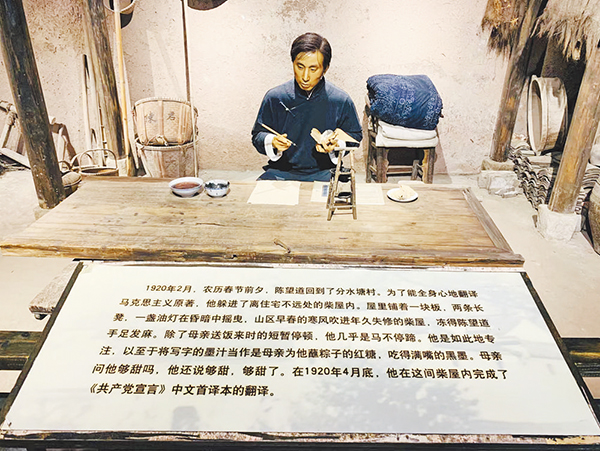 1920年2月，农历春节前夕，陈望道回到了分水塘村。为了能全身心地翻译
马克思主义原著，他躲进了离住宅不远处的柴屋内。屋里铺着一块板，两条长
凳，一盏油灯在昏暗中摇曳，山区早春的寒风吹进年久失修的柴屋，冻得陈望道
手足发麻。除了母亲送饭来时的短暂停顿，他几乎是马不停蹄。他是如此地专
注，以至于将写字的墨汁当作是母亲为他蘸粽子的红糖，吃得满嘴的黑墨。母亲
问他够甜吗，他还说够甜，够甜了。在1920年4月底，他在这间柴屋内完成了
《共产党宣言》中文首译本的翻译。